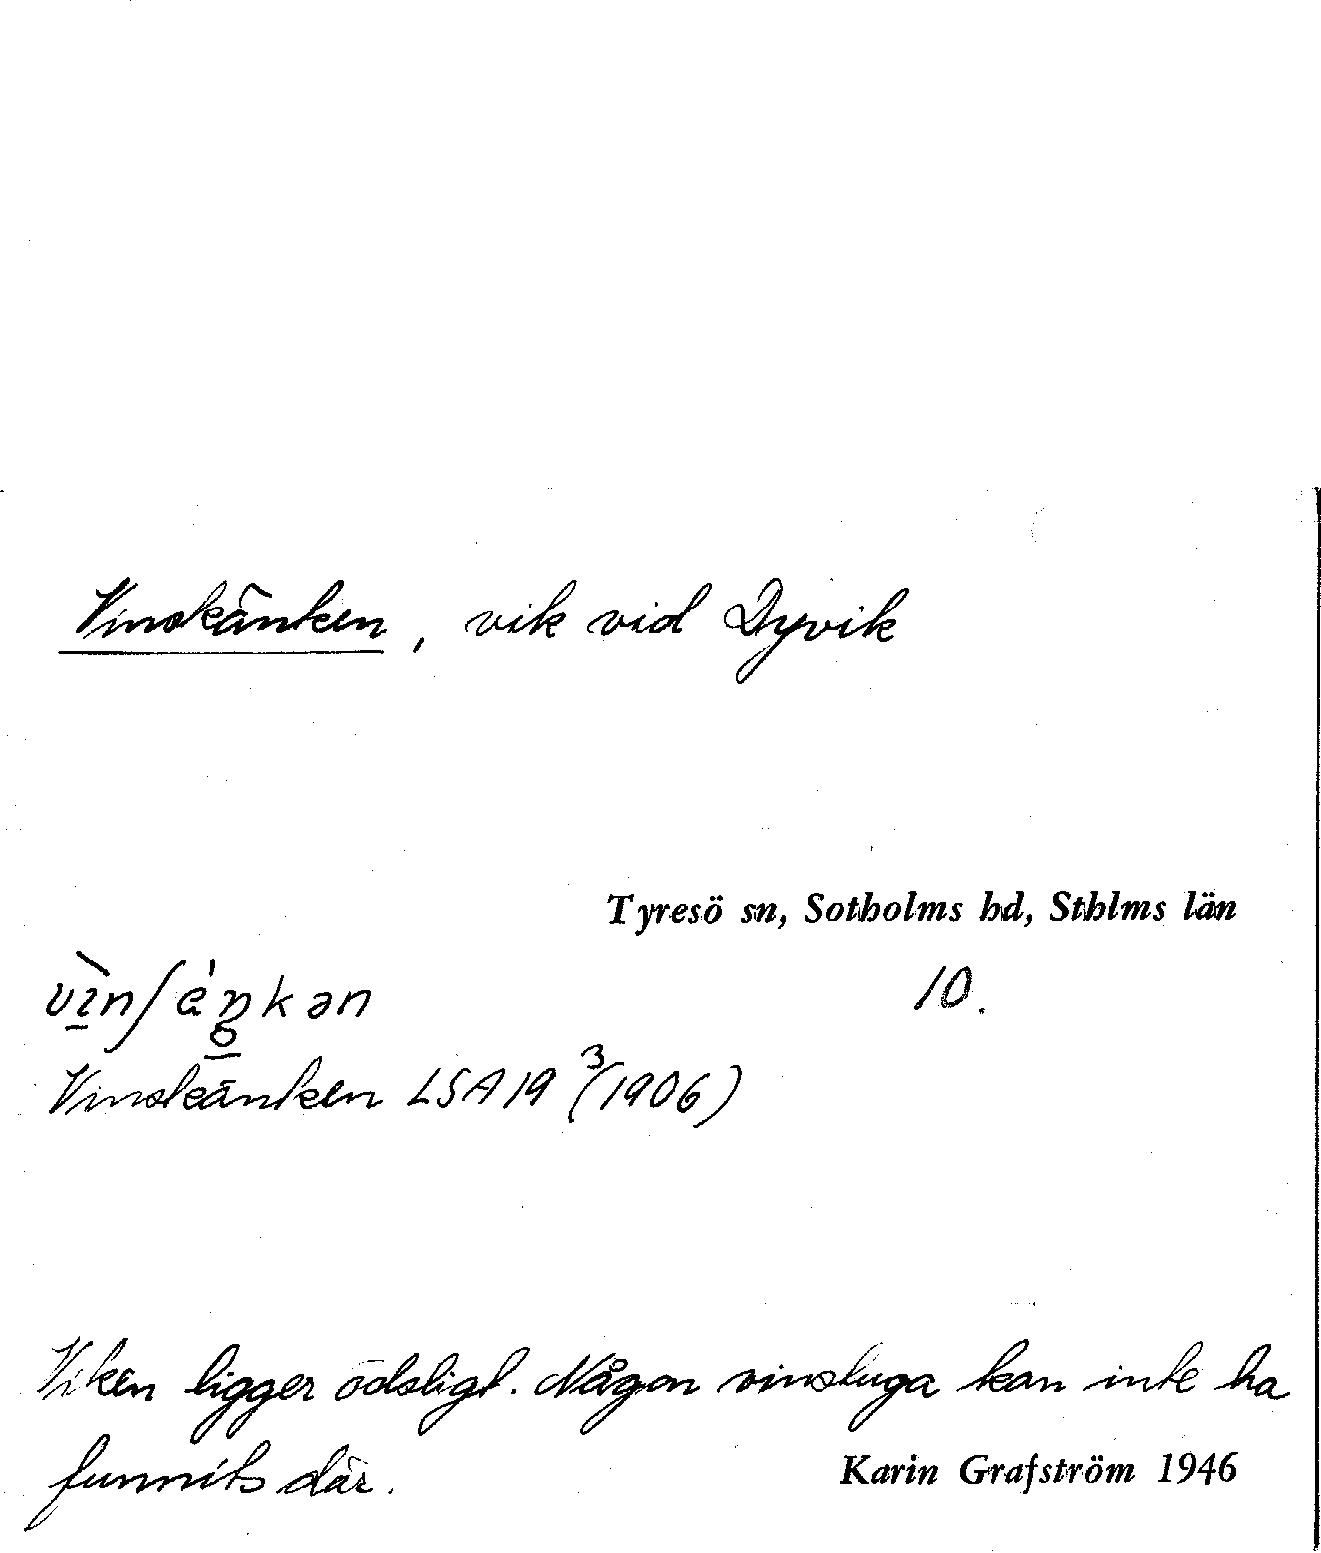 Vinskänken, vik vid Dyvik
Tyresö sn, Sotholms hd, Sthlms län
10.
Vinskänken LSA 19 3/(1906)
Viken ligger ödsligt. Någon vinstuga kan inte ha
funnits där.
Karin Grafström 1946